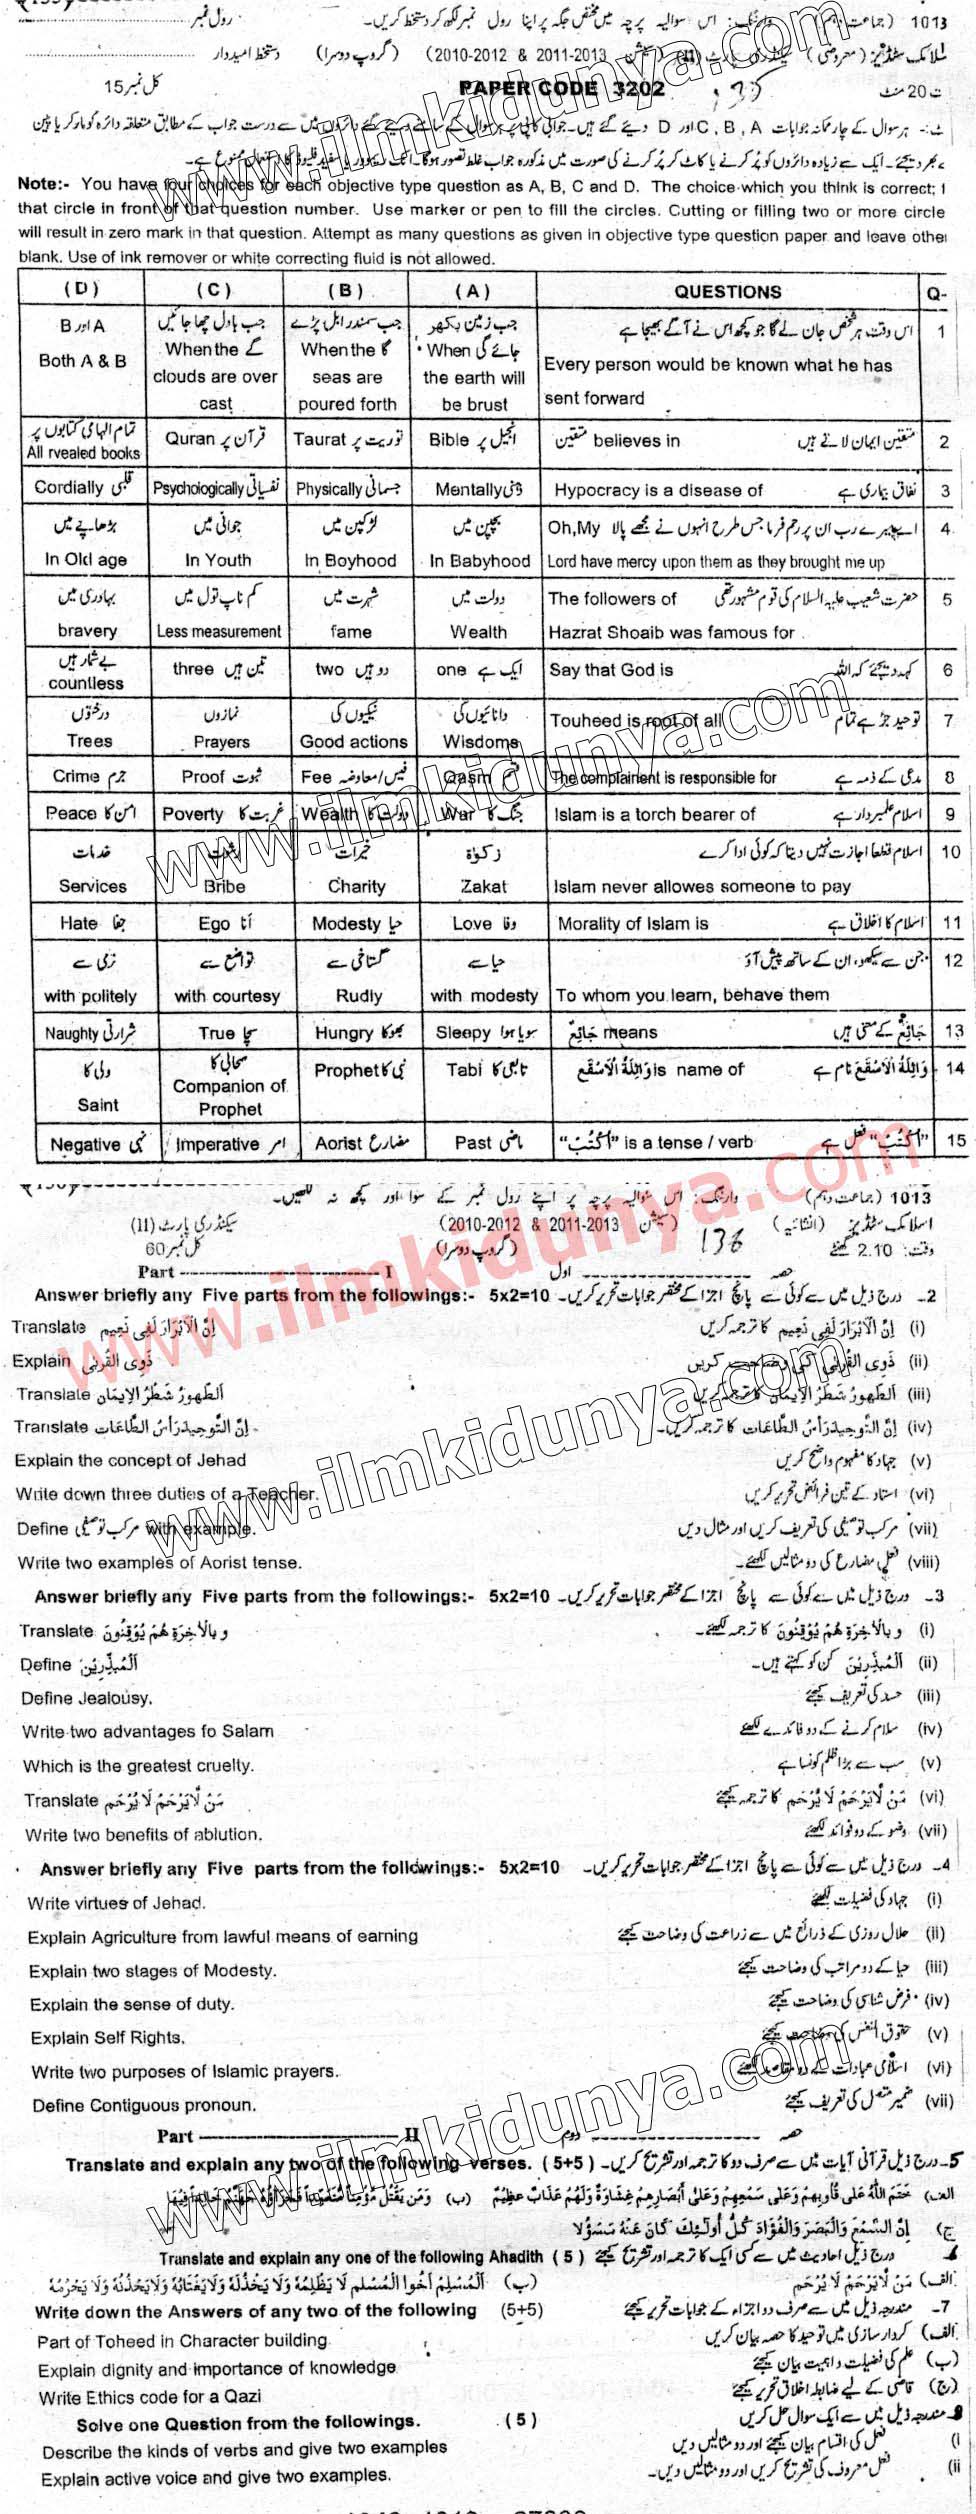 1013 (جماعت دہم) وارننگ: اس سوالیہ پرچہ میں مختص جگہ پر اپنا رول نمبر لکھ کر دستخط کریں۔ رول نمبر
(گروپ دوسرا) (2010-2012 & 2011-2013 دستخط امیدوار
20 منٹ PAPER CODE 3202 کل نمبر 15
ہر سوال کے چار ممکنہ جوابات A, B, C اور D دیئے گئے ہیں۔
Note:- You have four choices for each objective type question as A, B, C and D. The choice which you think is correct;
that circle in front of that question number. Use marker or pen to fill the circles. Cutting or filling two or more circle
will result in zero mark in that question. Attempt as many questions as given in objective type question paper and leave other
blank. Use of ink remover or white correcting fluid is not allowed.
(D) (C) (B) (A) QUESTIONS Q-
A اور B جب بادل چھا جائیں گے جب سمندر ابل پڑے گا جب زمین بکھر جائے گی اس وقت ہر شخص جان لے گا جو کچھ اس نے آگے بھیجا ہے 1
Both A & B When the clouds are over cast When the seas are poured forth When the earth will be brust Every person would be known what he has sent forward
تمام الہامی کتابوں پر All rvealed books Quran قرآن پر Taurat توریت پر Bible انجیل پر متقین believes in متقین ایمان لاتے ہیں 2
Cordially قلبی Psychologically نفسیاتی Physically جسمانی Mentally ذہنی Hypocracy is a disease of نفاق بیماری ہے 3
بڑھاپے میں جوانی میں لڑکپن میں بچپن میں Oh,My اے میرے رب ان پر رحم فرما جس طرح انہوں نے مجھے پالا 4
In Old age In Youth In Boyhood In Babyhood Lord have mercy upon them as they brought me up
بہادری میں کم ناپ تول میں شہرت میں دولت میں The followers of حضرت شعیب علیہ السلام کی قوم مشہور تھی 5
bravery Less measurement fame Wealth Hazrat Shoaib was famous for
بے شمار ہیں countless three تین ہیں two دو ہیں one ایک ہے Say that God is کہہ دیجئے کہ اللہ 6
درختوں نمازوں نیکیوں کی دانائیوں کی Touheed is root of all توحید جڑ ہے تمام 7
Trees Prayers Good actions Wisdoms
Crime جرم Proof ثبوت Fee فیس/معاوضہ Qasm قسم The complainent is responsible for مدعی کے ذمہ ہے 8
Peace امن کا Poverty غربت کا Wealth دولت کا War جنگ کا Islam is a torch bearer of اسلام علمبردار ہے 9
خدمات رشوت خیرات زکوٰۃ اسلام قطعاً اجازت نہیں دیتا کہ کوئی ادا کرے 10
Services Bribe Charity Zakat Islam never allowes someone to pay
Hate جفا Ego انا Modesty حیا Love وفا Morality of Islam is اسلام کا اخلاق ہے 11
نرمی سے تواضع سے گستاخی سے حیا سے جن سے سیکھو، ان کے ساتھ پیش آؤ 12
with politely with courtesy Rudly with modesty To whom you learn, behave them
Naughty شرارتی True سچا Hungry بھوکا Sleepy سویا ہوا جَائِعٌ means جَائِعٌ کے معنی ہیں 13
ولی کا صحابی کا Prophet نبی کا Tabi تابعی کا وَاثِلَةُ الْاَسْقَع is name of وَاثِلَةُ الْاَسْقَع نام ہے 14
Saint Companion of Prophet
Negative نہی Imperative امر Aorist مضارع Past ماضی "اُكْتُبْ" is a tense / verb "اُكْتُبْ" فعل ہے 15
1013 (جماعت دہم) وارننگ: اس سوالیہ پرچہ پر اپنے رول نمبر کے سوا اور کچھ نہ لکھیں۔
اسلامک سٹڈیز (انشائیہ) (سیشن 2010-2012 & 2011-2013) سیکنڈری پارٹ (II)
وقت: 2.10 گھنٹے 136 (گروپ دوسرا) کل نمبر 60
Part I حصہ اول
Answer briefly any Five parts from the followings:- 5x2=10 2۔ درج ذیل میں سے کوئی سے پانچ اجزا کے مختصر جوابات تحریر کریں۔
Translate اِنَّ الْاَبْرَارَ لَفِی نَعِیم (i) اِنَّ الْاَبْرَارَ لَفِی نَعِیم کا ترجمہ کریں
Explain ذَوِی الْقُرْبٰی (ii) ذَوِی الْقُرْبٰی کی وضاحت کریں
Translate اَلطَّهورُ شَطْرُ الاِیمَان (iii) اَلطَّهورُ شَطْرُ الاِیمَان کا ترجمہ کریں
Translate اِنَّ التَّوحِیدَ رَاْسُ الطَّاعَات (iv) اِنَّ التَّوحِیدَ رَاْسُ الطَّاعَات کا ترجمہ کریں۔
Explain the concept of Jehad (v) جہاد کا مفہوم واضح کریں
Write down three duties of a Teacher. (vi) استاد کے تین فرائض تحریر کریں
Define مرکب توصیفی with example. (vii) مرکب توصیفی کی تعریف کریں اور مثال دیں
Write two examples of Aorist tense. (viii) فعل مضارع کی دو مثالیں لکھئے۔
Answer briefly any Five parts from the followings:- 5x2=10 3۔ درج ذیل میں سے کوئی سے پانچ اجزا کے مختصر جوابات تحریر کریں۔
Translate وَبِالْاٰخِرَةِ هُمْ يُوْقِنُوْنَ (i) وَبِالْاٰخِرَةِ هُمْ يُوْقِنُوْنَ کا ترجمہ لکھئے۔
Define اَلْمُبَذِّرِیْنَ (ii) اَلْمُبَذِّرِیْنَ کن کو کہتے ہیں۔
Define Jealousy. (iii) حسد کی تعریف کیجئے
Write two advantages fo Salam (iv) سلام کرنے کے دو فائدے لکھئے
Which is the greatest cruelty. (v) سب سے بڑا ظلم کونسا ہے
Translate مَنْ لَّا یَرْحَم لَا یُرْحَم (vi) مَنْ لَّا یَرْحَم لَا یُرْحَم کا ترجمہ کیجئے
Write two benefits of ablution. (vii) وضو کے دو فوائد لکھئے
Answer briefly any Five parts from the followings:- 5x2=10 4۔ درج ذیل میں سے کوئی سے پانچ اجزا کے مختصر جوابات تحریر کریں۔
Write virtues of Jehad. (i) جہاد کی فضیلت لکھئے
Explain Agriculture from lawful means of earning (ii) حلال روزی کے ذرائع میں سے زراعت کی وضاحت کیجئے
Explain two stages of Modesty. (iii) حیا کے دو مراتب کی وضاحت کیجئے
Explain the sense of duty. (iv) فرض شناسی کی وضاحت کیجئے
Explain Self Rights. (v) حقوق النفس کی وضاحت کیجئے
Write two purposes of Islamic prayers. (vi) اسلامی عبادات کے دو مقاصد لکھئے
Define Contiguous pronoun. (vii) ضمیر متصل کی تعریف کیجئے
Part II حصہ دوم
Translate and explain any two of the following verses. (5+5) 5۔ درج ذیل قرآنی آیات میں سے صرف دو کا ترجمہ اور تشریح کریں۔
الف) خَتَمَ اللّٰهُ عَلٰی قُلُوبِهِمْ وَعَلٰی سَمْعِهِمْ وَعَلٰی اَبْصَارِهِمْ غِشَاوَةٌ وَّلَهُمْ عَذَابٌ عَظِیْمٌ (ب) وَمَنْ یَّقْتُلْ مُؤْمِنًا مُّتَعَمِّدًا فَجَزَآؤُهٗ جَهَنَّمُ خَالِدًا فِیْهَا
ج) اِنَّ السَّمْعَ وَالْبَصَرَ وَالْفُؤَادَ كُلُّ اُولٰٓئِكَ كَانَ عَنْهُ مَسْؤُلًا
Translate and explain any one of the following Ahadith (5) درج ذیل احادیث میں سے کسی ایک کا ترجمہ اور تشریح کیجئے
الف) مَنْ لَّا یَرْحَمْ لَا یُرْحَم (ب) اَلْمُسْلِمُ اَخُوا الْمُسْلِمِ لَا یَظْلِمُهُ وَلَا یَخْذُلُهُ
Write down the Answers of any two of the following (5+5) 7۔ مندرجہ ذیل میں سے صرف دو اجزاء کے جوابات تحریر کیجئے
Part of Toheed in Character building الف) کردار سازی میں توحید کا حصہ بیان کریں
Explain dignity and importance of knowledge (ب) علم کی فضیلت و اہمیت بیان کیجئے
Write Ethics code for a Qazi (ج) قاضی کے لیے ضابطہ اخلاق تحریر کیجئے
Solve one Question from the followings. (5) 8۔ مندرجہ ذیل میں سے ایک سوال حل کریں
Describe the kinds of verbs and give two examples i) فعل کی اقسام بیان کیجئے اور دو مثالیں دیں
Explain active voice and give two examples. ii) فعل معروف کی تشریح کریں اور دو مثالیں دیں۔
www.ilmkidunya.com